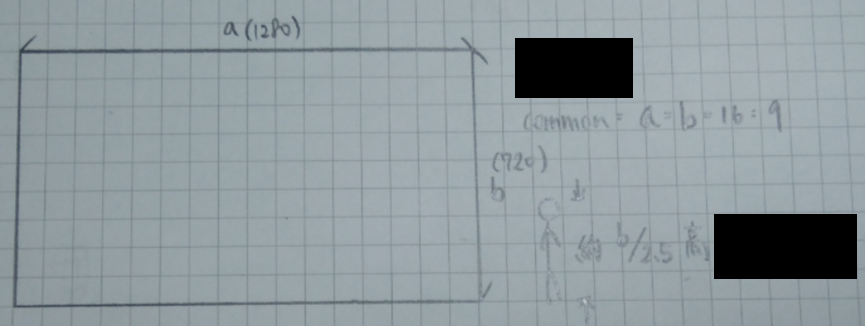 a(1280)
common = a = b = 16 : 9
(720)
b
b/2.5 高